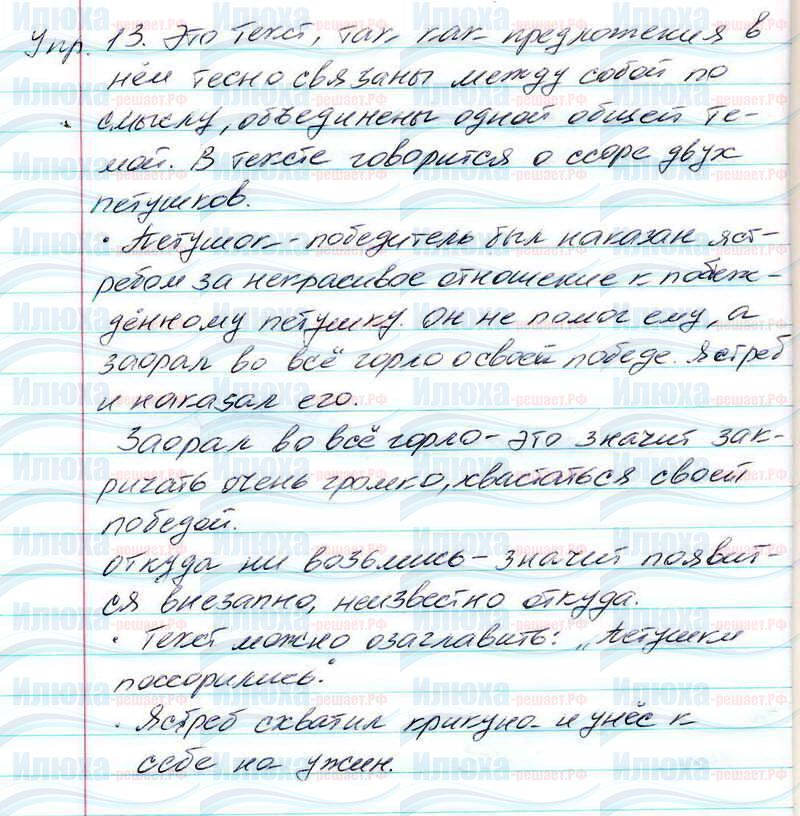 Упр. 13. Это текст, так как предложения в
нём тесно связаны между собой по
смыслу, объединены одной общей те-
мой. В тексте говорится о ссоре двух
петушков.
• Петушок-победитель был наказан яст-
ребом за некрасивое отношение к побеж-
дённому петушку. Он не помог ему, а
заорал во всё горло о своей победе. Ястреб
и наказал его.
Заорал во всё горло - это значит зак-
ричать очень громко, хвастаться своей
победой.
Откуда ни возьмись - значит появит-
ся внезапно, неизвестно откуда.
• Текст можно озаглавить: „Петушки
поссорились."
• Ястреб схватил крикуна и унёс к
себе на ужин.